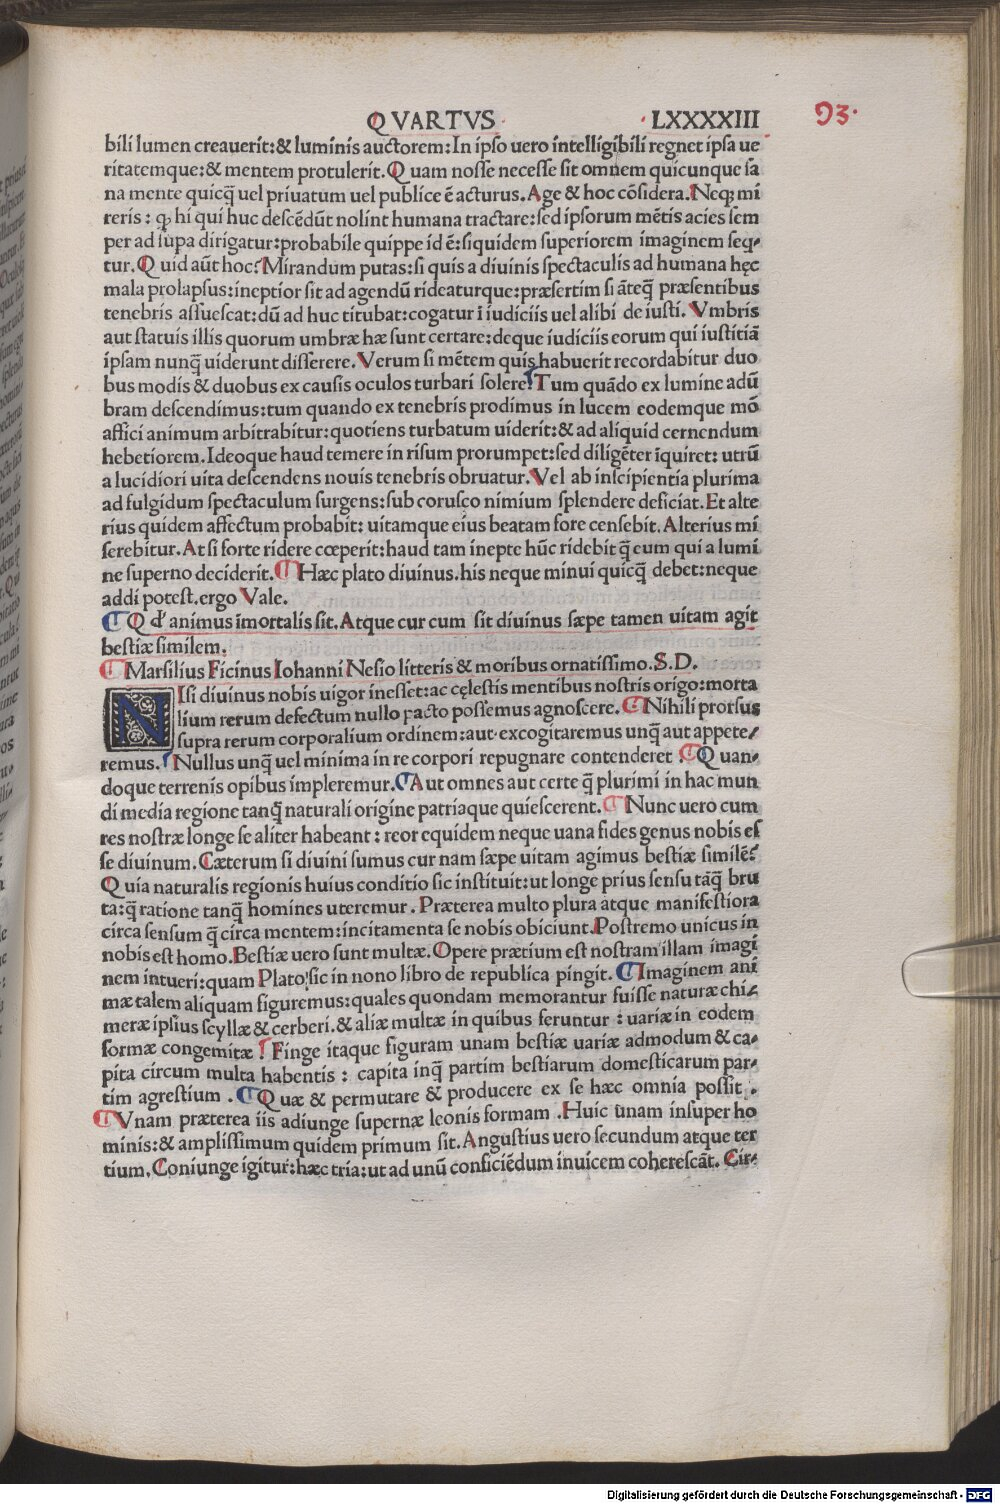 QVARTVS LXXXXIII 93.
bili lumen creauerit: & luminis auctorem: In ipso uero intelligibili regnet ipsa ue
ritatemque: & mentem protulerit. Quam nosse necesse sit omnem quicunque sa
na mente quicq̃ uel priuatum uel publice ē acturus. Age & hoc cōsidera. Neqꝫ mi
reris: ꝙ hi qui huc descēdūt nolint humana tractare: sed ipsorum mētis acies sem
per ad supa dirigatur: probabile quippe id ē: siquidem superiorem imaginem seq-
tur. Quid aūt hoc? Mirandum putas: si quis a diuinis spectaculis ad humana hęc
mala prolapsus: ineptior sit ad agendū rideaturque: præsertim si āteq̃ præsentibus
tenebris assuescat: dū ad huc titubat: cogatur ī iudiciis uel alibi de iusti. Vmbris
aut statuis illis quorum umbræ hæ sunt certare: deque iudiciis eorum qui iustitiā
ipsam nunq̃ uiderunt disserere. Verum si mētem quis habuerit recordabitur duo
bus modis & duobus ex causis oculos turbari solere. Tum quādo ex lumine adū
bram descendimus: tum quando ex tenebris prodimus in lucem eodemque mō
affici animum arbitrabitur: quotiens turbatum uiderit: & ad aliquid cernendum
hebetiorem. Ideoque haud temere in risum prorumpet: sed diligēter īquiret: utrū
a lucidiori uita descendens nouis tenebris obruatur. Vel ab inscipientia plurima
ad fulgidum spectaculum surgens: sub corusco nimium splendere deficiat. Et alte
rius quidem affectum probabit: uitamque eius beatam fore censebit. Alterius mi
serebitur. At si forte ridere cœperit: haud tam inepte hūc ridebit q̃ eum qui a lumi
ne superno deciderit. ¶ Hæc plato diuinus. his neque minui quicq̃ debet: neque
addi potest. ergo Vale.
¶ Q d' animus imortalis sit. Atque cur cum sit diuinus sæpe tamen uitam agit
bestiæ similem.
¶ Marsilius Ficinus Iohanni Nesio litteris & moribus ornatissimo. S. D.
NIsi diuinus nobis uigor inesset: ac cęlestis mentibus nostris origo: morta
lium rerum defectum nullo pacto possemus agnoscere. ¶ Nihili prorsus
supra rerum corporalium ordinem: aut excogitaremus unq̃ aut appete-
remus. Nullus unq̃ uel minima in re corpori repugnare contenderet. ¶ Quan-
doque terrenis opibus impleremur. ¶ Aut omnes aut certe q̃ plurimi in hac mun
di media regione tanq̃ naturali origine patriaque quiescerent. ¶ Nunc uero cum
res nostræ longe se aliter habeant: reor equidem neque uana fides genus nobis es
se diuinum. Cæterum si diuini sumus cur nam sæpe uitam agimus bestiæ similē?
Quia naturalis regionis huius conditio sic instituit: ut longe prius sensu tāq̃ bru
ta: q̃ ratione tanq̃ homines uteremur. Præterea multo plura atque manifestiora
circa sensum q̃ circa mentem: incitamenta se nobis obiciunt. Postremo unicus in
nobis est homo. Bestiæ uero sunt multæ. Opere prætium est nostram illam imagi
nem intueri: quam Plato sic in nono libro de republica pingit. ¶ Imaginem ani
mæ talem aliquam figuremus: quales quondam memorantur fuisse naturæ chi-
meræ ipsius scyllæ & cerberi. & aliæ multæ in quibus feruntur: uariæ in eodem
formæ congemitæ. Finge itaque figuram unam bestiæ uariæ admodum & ca-
pita circum multa habentis: capita inq̃ partim bestiarum domesticarum par-
tim agrestium. ¶ Quæ & permutare & producere ex se hæc omnia possit.
¶ Vnam præterea iis adiunge supernæ leonis formam. Huic unam insuper ho
minis: & amplissimum quidem primum sit. Angustius uero secundum atque ter
tium. Coniunge igitur: hæc tria: ut ad unū conficiēdum inuicem coherescāt. Cir-
Digitalisierung gefördert durch die Deutsche Forschungsgemeinschaft - DFG